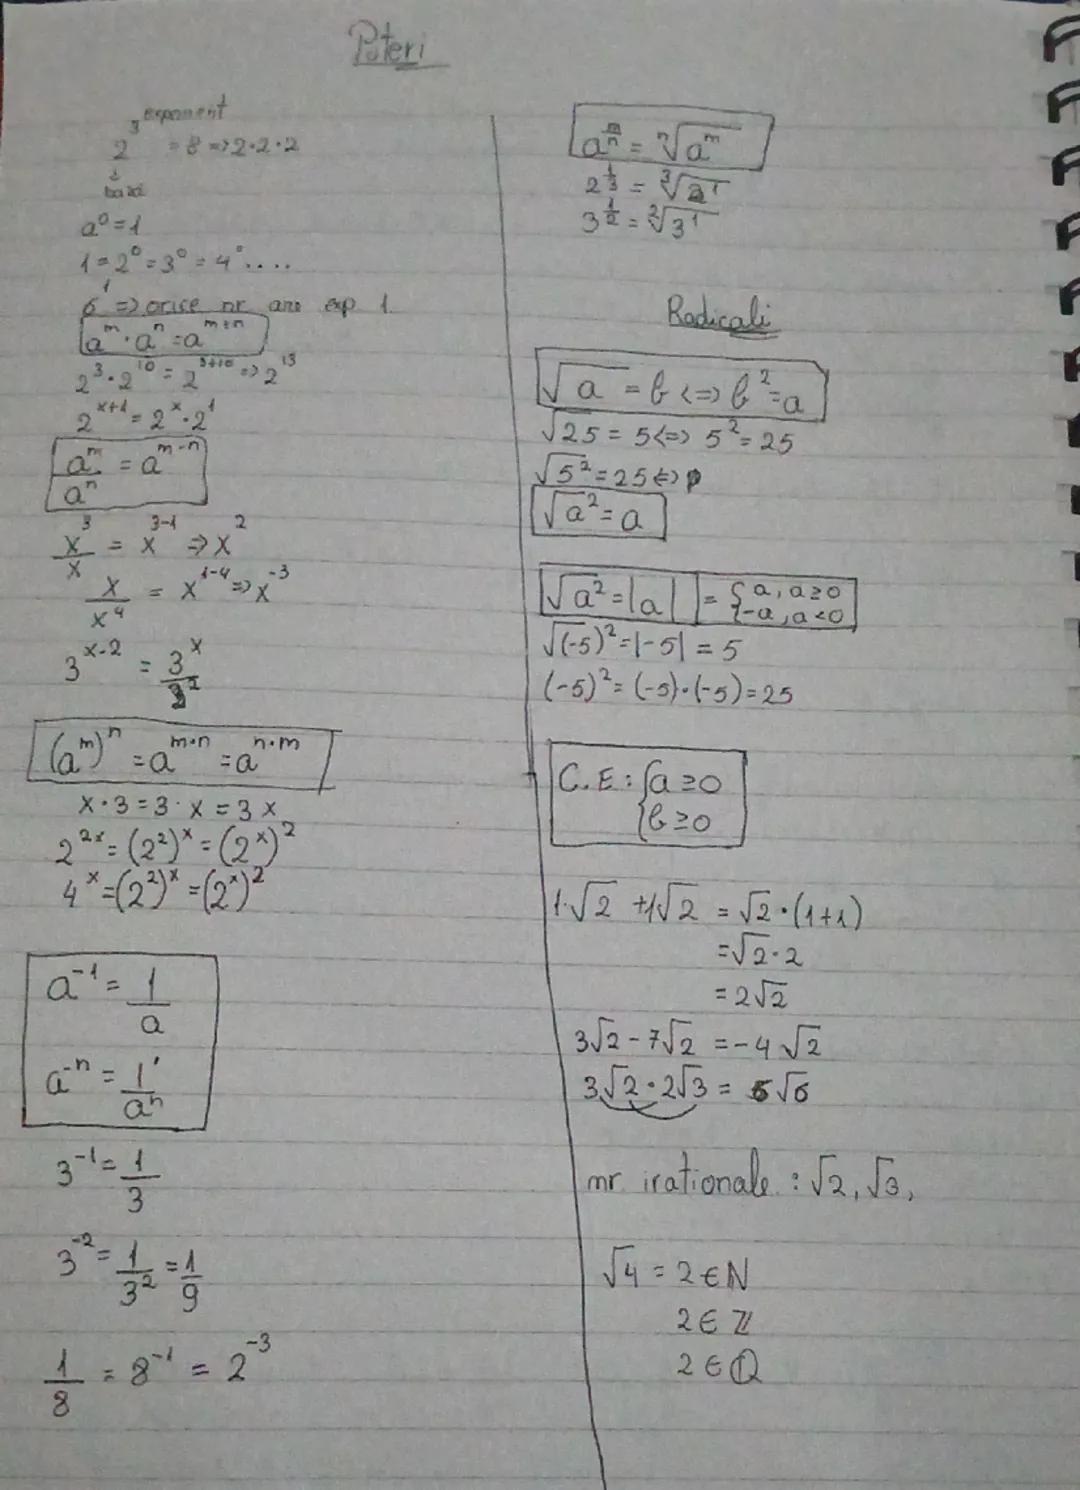 Puteri
2³ exponent = 8 => 2·2·2
↓
bază
a⁰ = 1
1 = 2⁰ = 3⁰ = 4⁰ ....
6¹ => orice nr are exp 1
a^m · a^n = a^(m+n)
2³ · 2¹⁰ = 2^(3+10) => 2¹³
2^(x+1) = 2^x · 2¹
a^m / a^n = a^(m-n)
x³/x = x^(3-1) => x²
x/x⁴ = x^(1-4) => x^(-3)
3^(x-2) = 3^x / 3²
(a^m)^n = a^(m·n) = a^(n·m)
x·3 = 3·x = 3x
2^(2x) = (2²)^x = (2^x)²
4^x = (2²)^x = (2^x)²
a^(-1) = 1/a
a^(-n) = 1/a^n
3^(-1) = 1/3
3^(-2) = 1/3² = 1/9
1/8 = 8^(-1) = 2^(-3)
a^(m/n) = ⁿ√a^m
2^(1/3) = ³√2¹
3^(1/2) = ²√3¹
Radicali
√a = b <=> b² = a
√25 = 5 <=> 5² = 25
√5² = 25 <=>
√a² = a
√a² = |a| = { a, a≥0
{ -a, a<0
√(-5)² = |-5| = 5
(-5)² = (-5)·(-5) = 25
C.E: { a ≥ 0
{ b ≥ 0
1·√2 + 1√2 = √2·(1+1)
= √2·2
= 2√2
3√2 - 7√2 = -4√2
3√2 · 2√3 = 6√6
nr. iraționale : √2, √3,
√4 = 2 ∈ N
2 ∈ Z
2 ∈ Q